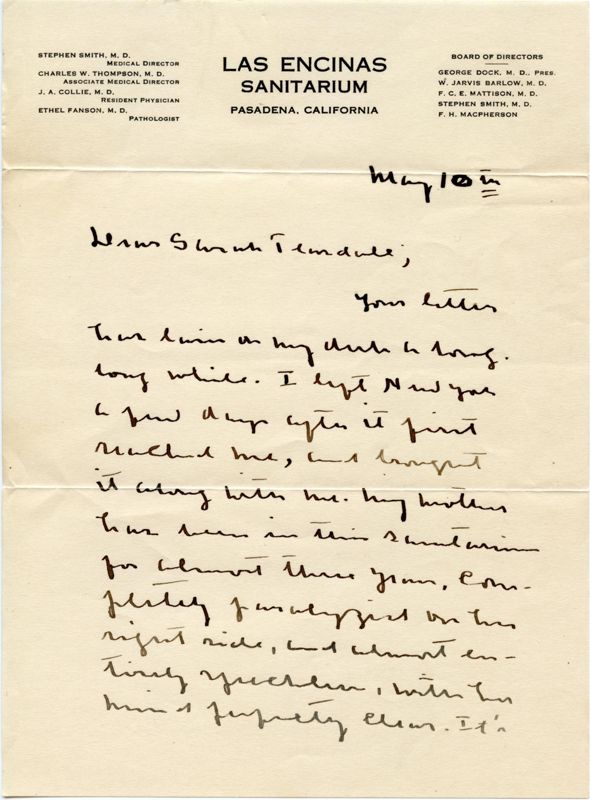 STEPHEN SMITH, M. D.
MEDICAL DIRECTOR
CHARLES W. THOMPSON, M. D.
ASSOCIATE MEDICAL DIRECTOR
J. A. COLLIE, M. D.
RESIDENT PHYSICIAN
ETHEL FANSON, M. D.
PATHOLOGIST
LAS ENCINAS
SANITARIUM
PASADENA, CALIFORNIA
BOARD OF DIRECTORS
GEORGE DOCK, M. D., PRES.
W. JARVIS BARLOW, M. D.
F. C. E. MATTISON, M. D.
STEPHEN SMITH, M. D.
F. H. MACPHERSON
May 10th
Dear Sarah Teasdale,
Your letter
has lain on my desk a long,
long while. I left New York
a few days after it first
reached me, and brought
it along with me. My mother
has been in this sanitarium
for almost three years, com-
pletely paralyzed on her
right side, and almost en-
tirely speechless, with her
mind perfectly clear. It's